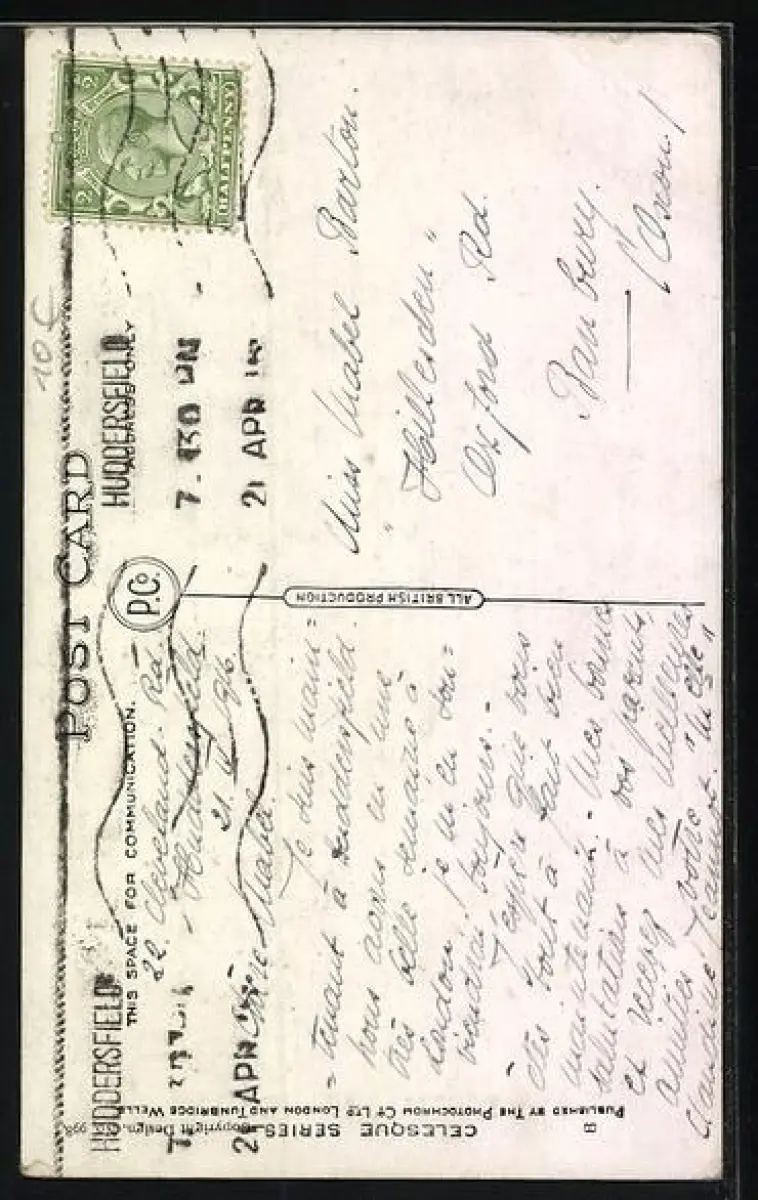 POST CARD
THIS SPACE FOR COMMUNICATION.
ADDRESS ONLY
HALFPENNY
HUDDERSFIELD
7.30 PM
21 APR 16
HUDDERSFIELD
21 APR
10 €
P.Co.
ALL BRITISH PRODUCTION
22. Cleveland. Rd
Huddersfield
21. IV 1916.
Chère Mabel.
Je suis main=
=tenant à Huddersfield.
nous avons eu une
très belle semaine à
London! je m'en sou=
viendrai toujours.-
J'espère que vous
êtes tout à fait bien
maintenant. - Mes bonnes
salutations à vos parents,
et recevez mes meilleures
amitiés, votre
Claudine Jeannot.
Miss Mabel Barton.
"Hillesden"
Oxford Rd.
Banbury.
(Oxon.)
B
CELESQUE SERIES
Copyright Design.
PUBLISHED BY THE PHOTOCHROM CO LTD LONDON AND TUNBRIDGE WELLS